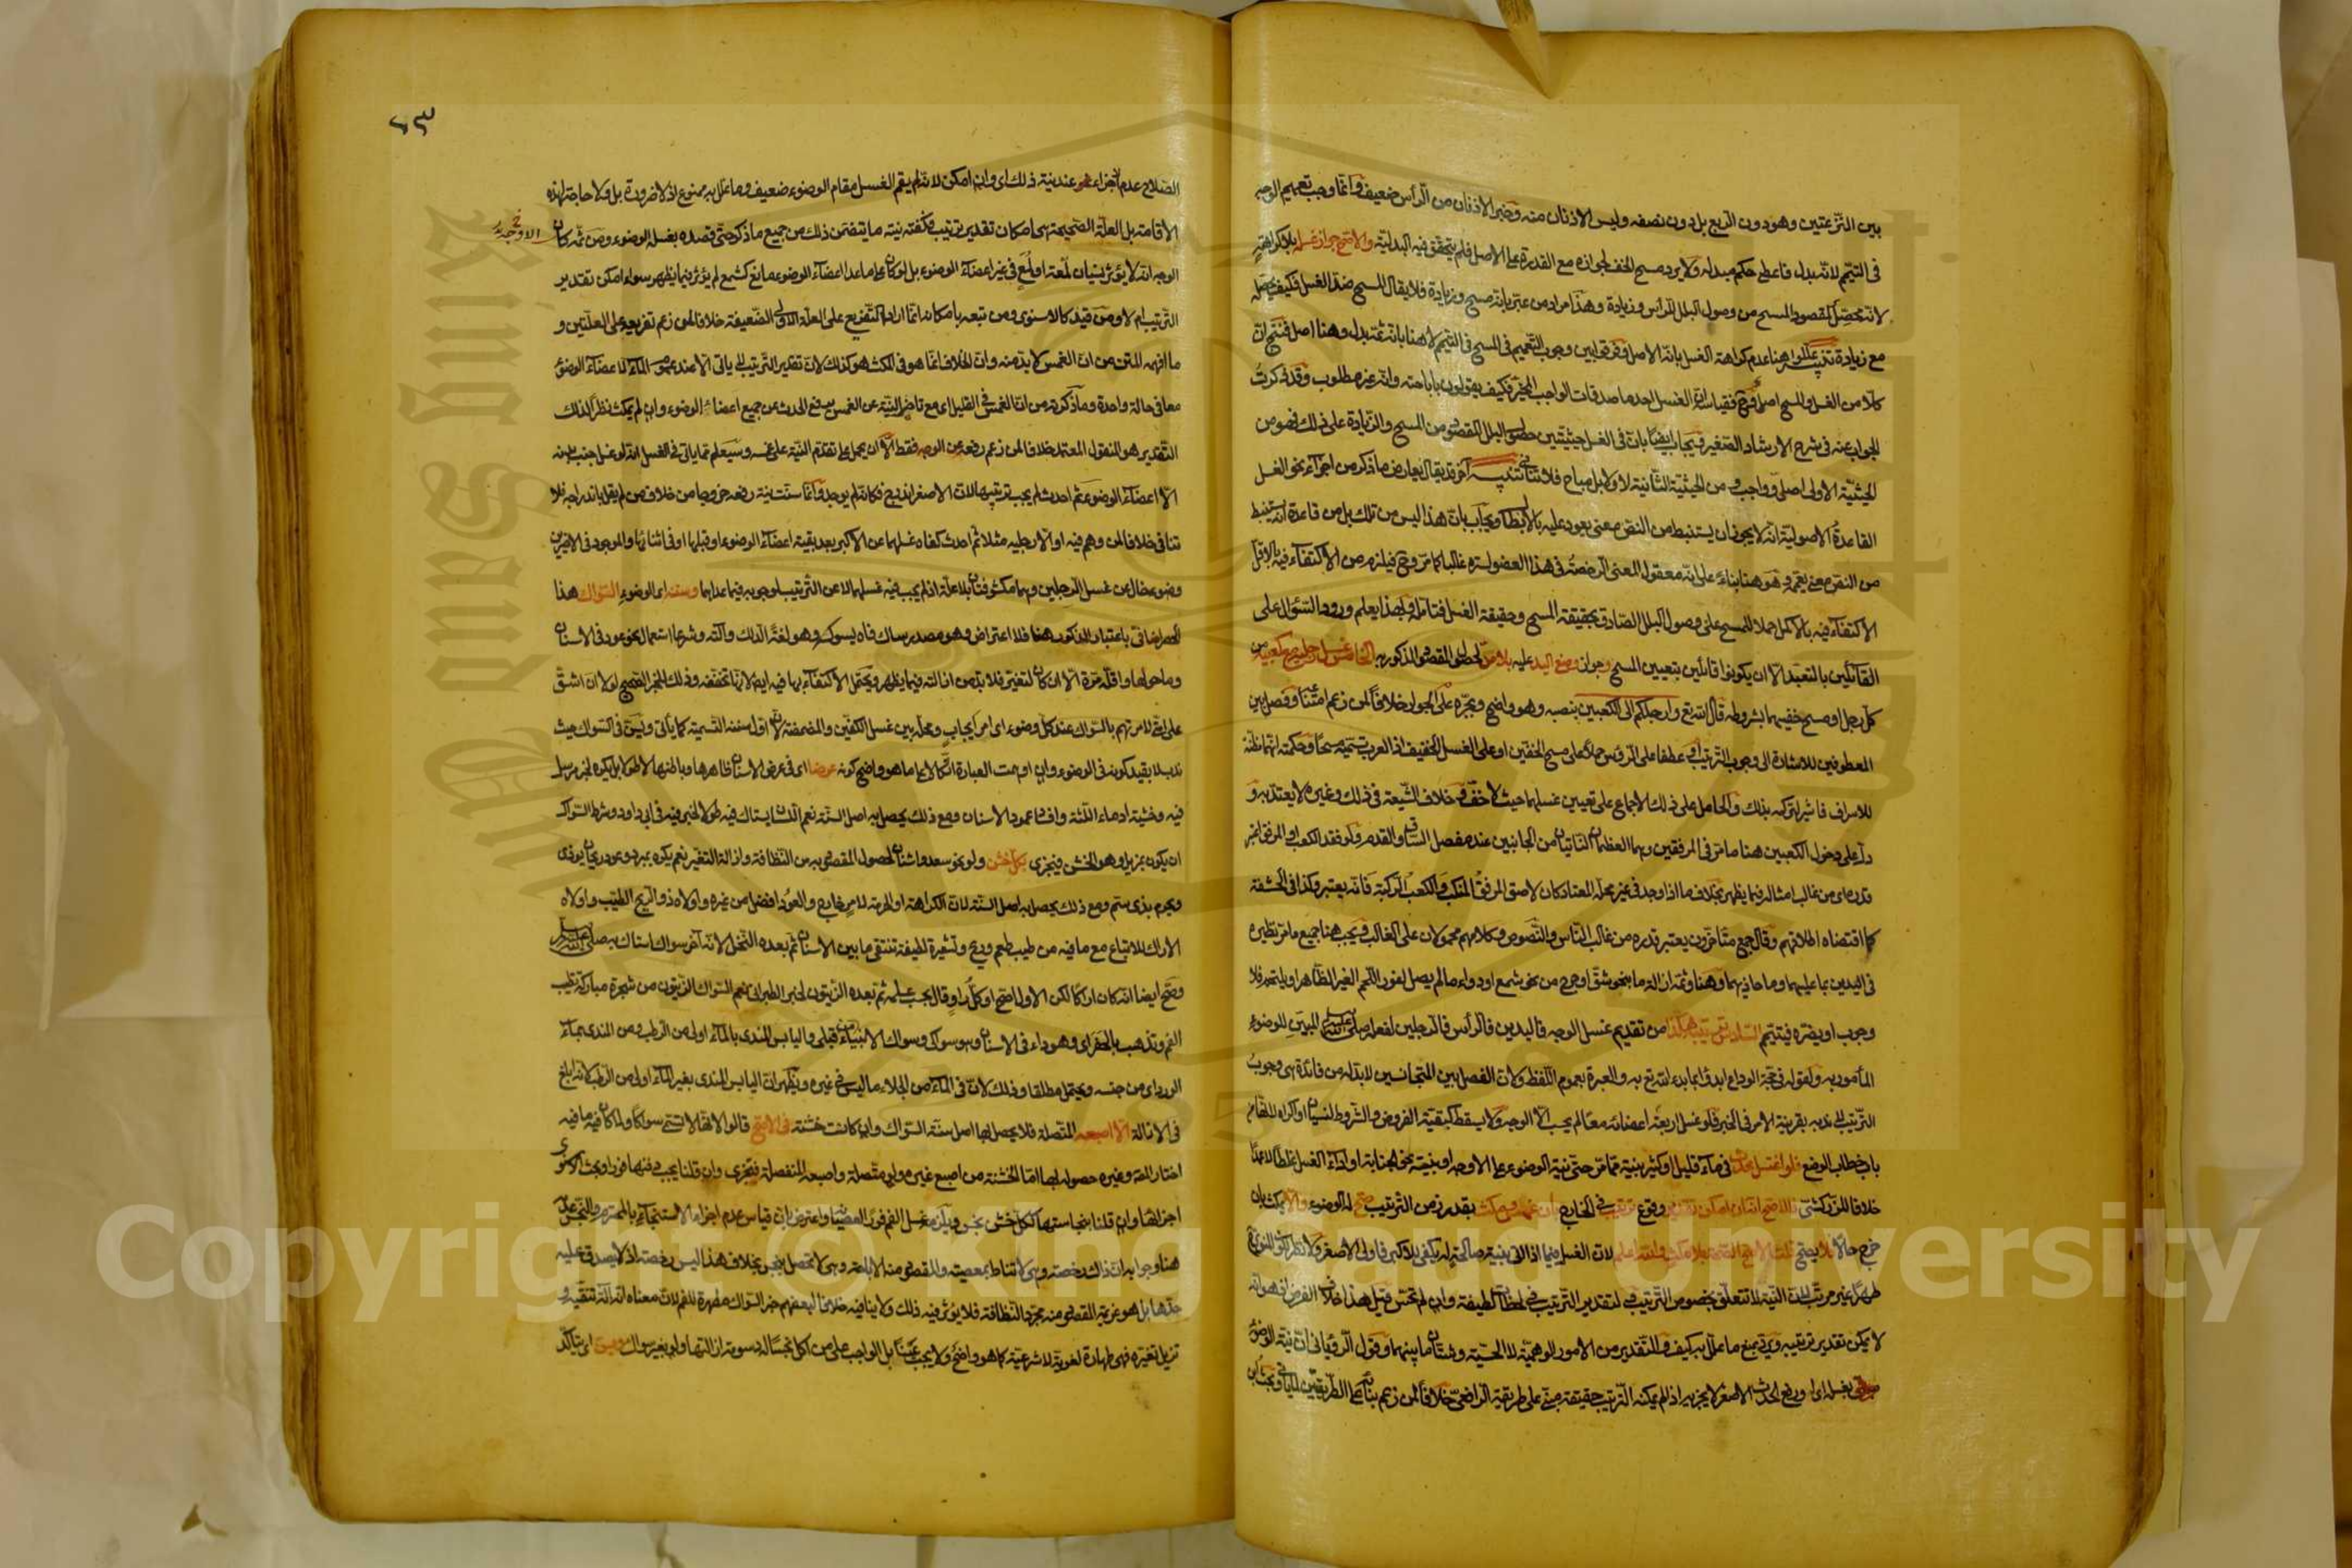 بين النزعتين وهو دون الربع بل دون نصفه وليس الاذنان منه وخبر الاذنان من الرأس ضعيف وانما وجب تعميم الوجه
في التيمم لانه بدل فاعطى حكم مبدله ولا يرد مسح الخف لجوازه مع القدرة على الاصل فلم يتحقق فيه البدلية والاصح جواز غسله بلا كراهة
لانه محصل لمقصود المسح من وصول البلل للرأس وزيادة وهذا مراد من عبر بانه مسح وزيادة فلا يقال المسح ضد الغسل فكيف يحصله
مع زيادة تنبيه عللوا هنا عدم كراهة الغسل بانه الاصل وفرقوا بين وجوب التعميم في المسح في التيمم لا هنا بانه ثمة بدل وهنا اصل فنتج ان
كلا من الغسل والمسح اصل فقياسه ان الغسل احد ما صدقات الواجب المخير فكيف يقولون باباحته وانه غير مطلوب وقد ذكرت
الجواب عنه في شرح الارشاد الصغير ويجاب ايضا بان في الغسل حيثيتين حصول البلل المقصود من المسح والزيادة على ذلك فهو من
الحيثية الاولى اصلي وواجب ومن الحيثية الثانية لا ولا بل مباح فلا تنافي تنبيه آخر قد يقال يعارض ما ذكر من اجزاء نحو الغسل
القاعدة الاصولية انه لا يجوز ان يستنبط من النص معنى يعود عليه بالابطال ويجاب بان هذا ليس من تلك بل من قاعدة انه يستنبط
من النص معنى يعممه وهو هنا بناء على انه معقول المعنى الرخصة في هذا العضو لستره غالبا كما مر وح فيلزم من الاكتفاء فيه بالاقل
الاكتفاء فيه بالاكمل حملا للمسح على وصول البلل الصادق بحقيقة المسح وحقيقة الغسل فتامله وبهذا يعلم ورود السؤال على
القائلين بالتعبد الا ان يكونوا قائلين بتعيين المسح وجواز وضع اليد عليه بلا مد لحصول المقصود المذكور به الخامس غسل رجليه مع كعبيه من
كل رجل او مسح خفيهما بشروطه قال الله تع وارجلكم الى الكعبين بنصبه وهو واضح وبجره على الجوار خلافا لمن زعم امتناعه وفصل بين
المعطوفين للاشارة الى وجوب الترتيب او عطفا على الرؤس حملا على مسح الخفين او على الغسل الخفيف اذ العرب تسميه مسحا وحكمته انهما مظنة
للاسراف فاشير لتركه بذلك والحامل على ذلك الاجماع على تعيين غسلهما حيث لا خف وخلاف الشيعة في ذلك وغيره لا يعتد به و
دل على دخول الكعبين هنا ما مر في المرفقين وهما العظمان الناتيان من الجانبين عند مفصل الساق والقدم ولو فقد الكعب او المرفق اعتبر
قدره اي من غالب امثاله فيما يظهر بخلاف ما اذا وجد في غير محله المعتاد كان لاصق المرفق المنكب والكعب الركبة فانه يعتبر وكذا في الحشفة
كما اقتضاه اطلاقهم وقال جمع متأخرون يعتبر قدره من غالب الناس والنصوص وكلامهم محمولان على الغالب ويجب هنا جميع ما مر نظيره
في اليدين بما عليهما وما حاذيهما وهنا وثمة ازالة ما بنحو شق او جرح من نحو شمع او دواء ما لم يصل لغور اللحم الغير الظاهر او يلتحم فلا
وجوب او يضره فيتيمم السادس ترتيبه هكذا من تقديم غسل الوجه فاليدين فالرأس فالرجلين لفعله صلى الله عليه وسلم المبين للوضوء
المأمور به ولقوله في حجة الوداع ابدؤا بما بدء الله تع به والعبرة بعموم اللفظ ولان الفصل بين المتجانسين لا بد له من فائدة هي وجوب
الترتيب لا ندبه بقرينة الامر في الخبر فلو غسل اربعة اعضائه معا لم يحسب الا الوجه ولا يسقط كبقية الفروض والشروط لنسيان او اكراه لما تقرر
باب خطاب الوضع فلو اغتسل محدث في ماء قليل او كثير بنية مما مر حتى نية الوضوء على الاوجه او بنية نحو الجنابة او اداء الغسل غلطا لا عمدا
خلافا للزركشي فالاصح انه ان امكن تقدير وقوع ترتيب في الخارج بان غطس ومكث بقدر زمن الترتيب صح له الوضوء والا يمكث بان
خرج حالا فلا يصح قلت الاصح الصحة بلا مكث والله اعلم لان الغسل فيما اذا اتى بنية صالحة له يكفي للاكبر فاولى الاصغر ولا نظر لكون المنوي ح
طهرا غير مرتب لان النية لا تتعلق بخصوص الترتيب ولتقدير الترتيب في لحظات لطيفة وان لم تحس قيل هذا خلاف الفرض اذ هو انه
لا يمكن تقدير ترتيبه ويرد بمنع ما علل به كيف والتقدير من الامور الوهمية لا الحسية وشتان ما بينهما وقول الروياني ان نية الوضوء
بغسله اي او رفع الحدث الاصغر لا يجزيه اذا لم يمكنه الترتيب حقيقة مبني على طريقة الرافعي خلافا لمن زعم بناءه على الطريقين لما يأتي وبحث ابن
٦٣
الصلاح عدم اجزاء عند نية ذلك اي وان امكن لانه لم يقم الغسل مقام الوضوء ضعيف وما علل به ممنوع اذ لا ضرورة بل ولا حاجة لهذه
الاقامة بل العلة الصحيحة هي امكان تقدير ترتيب وكفته نيته ما يتضمن ذلك من جميع ما ذكر حتى قصده بغسله الوضوء ومن ثم كان
الاوجه
الوجه انه لا يؤثر نسيان لمعة او لمع في غير اعضاء الوضوء بل لو كان على ما عدا اعضاء الوضوء مانع كشمع لم يؤثر فيما يظهر سواء امكن تقدير
الترتيب ام لا ومن قيد كالاسنوي ومن تبعه بامكانه انما اراد التفريع على العلة الاولى الضعيفة خلافا لمن زعم تفريعه على العلتين و
ما افهمه المتن من ان الغمس لا بد منه وان الخلاف انما هو في المكث هو كذلك لان تقدير الترتيب لا يأتي الا عند عموم الماء لاعضاء الوضوء
معا في حالة واحدة وما ذكرته من ان الغمس في القليل اي مع تاخير النية عن الغمس يرفع الحدث عن جميع اعضاء الوضوء وان لم يمكث نظرا لذلك
التقدير هو المنقول المعتمد خلافا لمن زعم رفعه عن الوجه فقط الا ان يحمل على تقدم النية على غمسه وسيعلم مما يأتي في الغسل انه لو غسل جنب بدنه
الا اعضاء الوضوء ثم احدث لم يجب ترتيبها لان الاصغر اندرج فكانه لم يوجد وانما سنت نية رفعه خروجا من خلاف من لم يقل باندراجه فلا
تنافي خلافا لمن وهم فيه او الا رجليه مثلا ثم احدث كفاه غسلهما عن الاكبر بعد بقية اعضاء الوضوء او قبلها او في اثنائها والموجود في الاخيرين
وضوء خال من غسل الرجلين وهما مكشوفتان بلا علة اذ لم يجب فيه غسلهما لا عن الترتيب لوجوبه فيما عداهما وسننه اي الوضوء السواك هذا
الحصر اضافي باعتبار المذكور هنا فلا اعتراض وهو مصدر ساك فاه يسوكه وهو لغة الدلك وآلته وشرعا استعمال نحو عود في الاسنان
وما حولها واقله مرة الا ان كان لتغير فلا بد من ازالته فيما يظهر ويحتمل الاكتفاء بها فيه ايضا لانها تخففه وذلك للخبر الصحيح لولا ان اشق
على امتي لامرتهم بالسواك عند كل وضوء اي امر ايجاب ومحله بين غسل الكفين والمضمضة لان اول سننه التسمية كما يأتي ويسن في السواك حيث
ندب لا بقيد كونه في الوضوء وان اوهمت العبارة اتكالا على ما هو واضح كونه عرضا اي في عرض الاسنان ظاهرها وباطنها لا طولا بل يكره لخبر مرسل
فيه وخشية ادماء اللثة وافساد عمود الاسنان ومع ذلك يحصل به اصل السنة نعم اللسان يستاك فيه طولا لخبر فيه في ابي داود وشرط السواك
ان يكون بمزيل وهو الخشن فيجزي بكل خشن ولو نحو سعد واشنان لحصول المقصود به من النظافة وازالة التغير نعم يكره بمبرد وعود ريحان يؤذي
ويحرم بذي سم ومع ذلك يحصل به اصل السنة لان الكراهة او الحرمة لامر خارج والعود افضل من غيره واولاه ذو الريح الطيب واولاه
الاراك للاتباع مع ما فيه من طيب طعم وريح وتشعيرة لطيفة تنقي ما بين الاسنان ثم بعده النخل لانه آخر سواك استاك به صلى الله عليه وسلم
وصح ايضا انه كان اراكا لكن الاول اصح او كل راو قال بحسب علمه ثم بعده الزيتون لخبر الطبراني نعم السواك الزيتون من شجرة مباركة تطيب
الفم وتذهب بالحفر اي وهو داء في الاسنان وهو سواكي وسواك الانبياء قبلي واليابس المندى بالماء اولى من الرطب ومن المندى بماء
الورد اي من جنسه ويحتمل مطلقا وذلك لان في الماء من الجلاء ما ليس في غيره ويظهر ان اليابس المندى بغير الماء اولى من الرطب لانه ابلغ
في الازالة الا اصبعه المتصلة فلا يحصل بها اصل سنة السواك وان كانت خشنة في الاصح قالوا لانها لا تسمى سواكا ولما كان فيه ما فيه
اختار المص وغيره حصوله بها اما الخشنة من اصبع غيره ولو متصلة واصبعه المنفصلة فتجزي وان قلنا يجب دفنها فورا وبحث الاسنوي
اجزاءها وان قلنا بنجاستها ككل خشن نجس ويلزمه غسل الفم فورا لعصيانه واعترض بان قياس عدم اجزاء الاستنجاء بالمحترم والنجس عدمه
هنا وجوابه ان ذاك رخصة وهي لا تناط بمعصيته والمقصود منه الاباحة وهي لا تحصل بنجس بخلاف هذا ليس رخصة اذ لا يصدق عليه
حدها بل هو عزيمة المقصود منه مجرد النظافة فلا يؤثر فيه ذلك ولا ينافيه خلافا لبعضهم خبر السواك مطهرة للفم لان معناه انه آلة تنقيه و
تزيل تغيره فهي طهارة لغوية لا شرعية كما هو واضح ولا يجب عينا بل الواجب على من اكل نجسا له دسومة ازالتها ولو بغير سواك ويسن اي يتأكد